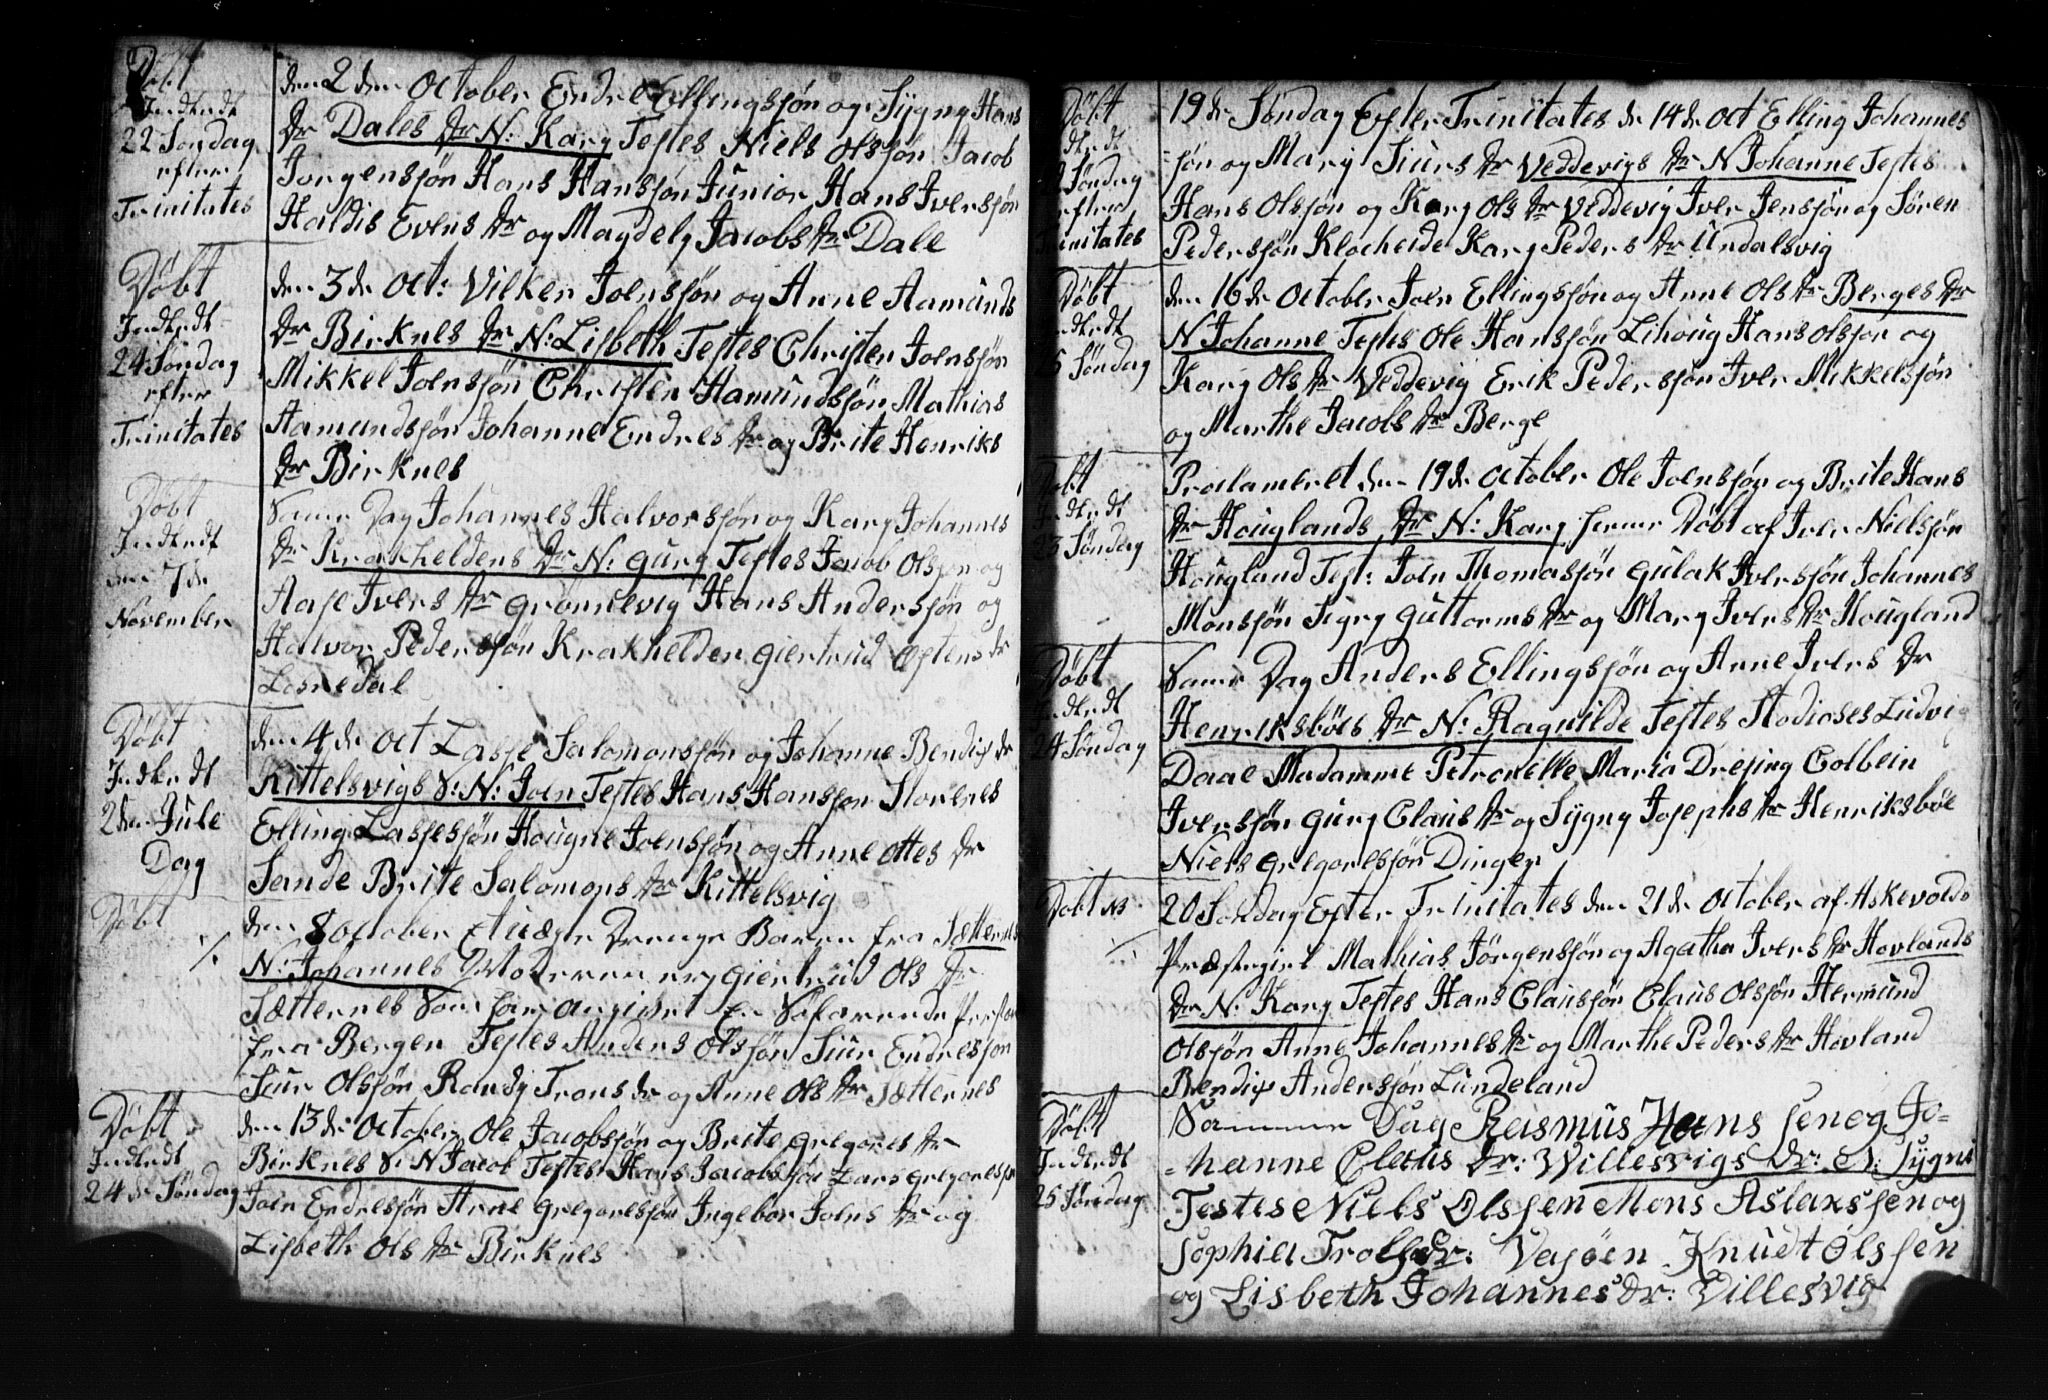 Døbt
Indledt
22 Søndag
efter
Trinitates
den 2den October Endre Ellingsøn og Sygny Hans
Dr Dales Dr N: Kary Testes Niels Olssøn Jacob
Jorgensøn Hans Hansøn Junior Hans Iversøn
Haldis Evens Dr og Magdely Jacobs Dr Dale
Døbt
Indledt
24 Søndag
efter
Trinitates
den 3de Oct: Vilken Joensøn og Anne Aamunds
Dr Birknes Dr N: Lisbeth Testes Christen Joensøn
Mikkel Joensøn Christen Aamundsøn Mathias
Aamundsøn Johanne Endres Dr og Brite Henriks
Dr Birknes
Døbt
Indledt
den 7de
November
Samme Dag Johannes Halvorsøn og Kary Johannes
Dr Krakheldens Dr N: Gury Testes Jacob Olsøn og
Aase Ivers Dr Grønnevig Hans Andersøn og
Halvor Pedersøn Krakhelden Giertrud Eftens dr
Losnedal
Døbt
Indledt
2den Jule
Dag
den 4de Oct Lasse Salomonsøn og Johanne Bendix dr
Kittelsvigs S: N: Joen Testes Hans Hansøn Storenes
Elling Lassesøn Hougne Joensøn og Anne Ottes Dr
Sande Brite Salomons Dr Kittelsvig
Døbt
den 8 October Et uægte Drenge Baren fra Sætternes
N: Johannes Moderen er Giertrud Ols Dr
Sætternes Som har angivet En Søfarende
fra Bergen Testes Anders Olssøn Siur Endressøn
Siur Olsøn Randy Trons dr og Anne Ols Dr Sætternes
Døbt
Indledt
24de Søndag
den 13de October Ole Jacobsøn og Brite Gregores Dr
Birknes S: N Jacob Testes Hans Jacobsøn Lars Gregoresøn
Joen Endresøn Anne Gregoresøn Ingebor Joens Dr og
Lisbeth Ols Dr Birknes
Døbt
Søndag
efter
Trinitates
19de Søndag Efter Trinitates de 14de Oct Elling Johannes
søn og Mary Siurs Dr Veddevigs Dr N Johanne Testes
Hans Olsøn og Kary Ols Dr Veddevig Iver Jensøn og Søren
Pedersøn Klocheide Kary Peders Dr Undalsvig
Døbt
Indledt
25 Søndag
den 16de October Joen Ellingsøn og Anne Ols Dr Berges Dr
N Johanne Testes Ole Hansøn Lihoug Hans Olsøn og
Kary Ols Dr Veddevig Erik Pedersøn Iver Mikkelsøn
og Marthe Jacobs Dr Berge
Døbt
Indledt
23 Søndag
Proclameret den 19de October Ole Joensøn og Brite Hans
Dr Houglands Dr N: Kary hiemme Døbt af Iver Nielsøn
Hougland Test: Joen Thomasøn Gulak Iversøn Johannes
Monsøn Sigry Guttorms Dr og Mary Ivers Dr Hougland
Døbt
Indledt
24 Søndag
Samme Dag Anders Ellingsøn og Anne Ivers Dr
Henriksbøes Dr N: Ragnilde Testes Studioses Ludvig
Daae Madamme Petronelle Maria Dreying Colbein
Iversøn Gury Claus Dr og Sygny Josephs Dr Henriksbøe
Niels Gregoresøn Dingen
Døbt NB
20 Søndag Efter Trinitates den 21de October af Askevolds
Præstegiel Mathias Jörgensøn og Agatha Ivers Dr Hovlands
Dr N: Kary Testes Hans Clausøn Claus Olsøn Hermund
Olsøn Anne Johannes Dr og Marthe Peders Dr Hovland
Bendix Andersøn Lundeland
Døbt
Indledt
25 Søndag
Samme Dag Rasmus Hans sen og Jo-
-hanne Claus Dr: Willesvigs Dr: N: Sygni
Testes Niels Olssen Mons Aslaxssen og
Sophia Trols Dr: Vasøen Knudt Olssen
og Lisbeth Johannes Dr: Villesvig